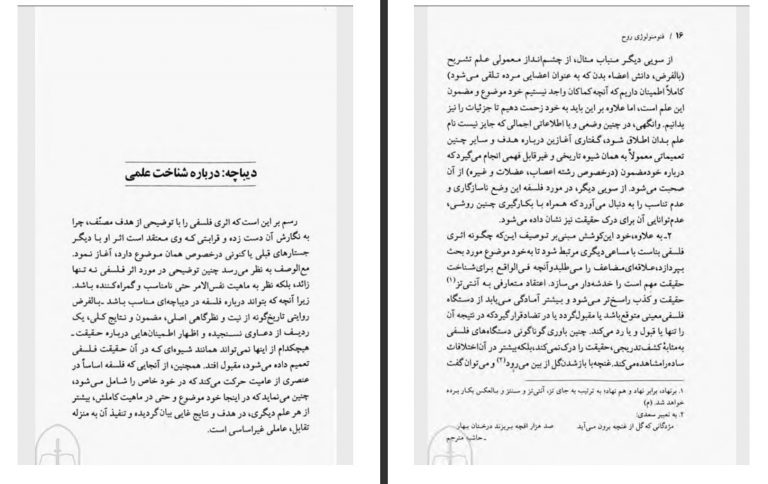 دیباچه: درباره شناخت علمی
رسم بر این است که اثری فلسفی را با توضیحی از هدف مصنّف، چرا
به نگارش آن دست زده و قرابتی که وی معتقد است اثر او با دیگر
جستارهای قبلی یا کنونی درخصوص همان موضوع دارد، آغاز نمود.
مع‌الوصف به نظر می‌رسد چنین توضیحی در مورد اثر فلسفی نه تنها
زائد، بلکه نظر به ماهیت نفس‌الامر حتی نامناسب و گمراه‌کننده باشد.
زیرا آنچه که بتواند درباره فلسفه در دیباچه‌ای مناسب باشد ـ بالفرض
روایتی تاریخ‌گونه از نیت و نظرگاهی اصلی، مضمون و نتایج کلی، یک
ردیف از دعاوی نسنجیده و اظهار اطمینان‌هایی درباره حقیقت ـ
هیچکدام از اینها نمی‌تواند همانند شیوه‌ای که در آن حقیقت فلسفی
تعمیم داده می‌شود، مقبول افتد. همچنین، از آنجایی که فلسفه اساساً در
عنصری از عامیت حرکت می‌کند که در خود خاص را شامل می‌شود،
چنین می‌نماید که در اینجا خود موضوع و حتی در ماهیت کاملش، بیشتر
از هر علم دیگری، در هدف و نتایج غایی بیان گردیده و تنفیذ آن به منزله
تقابل، عاملی غیراساسی است.
۱۶ / فنومنولوژی روح
از سویی دیگر منباب مثال، از چشم‌انداز معمولی علم تشریح
(بالفرض، دانش اعضاء بدن که به عنوان اعضایی مرده تلقی می‌شود)
کاملاً اطمینان داریم که آنچه کماکان واجد نیستیم خود موضوع و مضمون
این علم است، اما علاوه بر این باید به خود زحمت دهیم تا جزئیات را نیز
بدانیم. وانگهی، در چنین وضعی و با اطلاعاتی اجمالی که جایز نیست نام
علم بدان اطلاق شود، گفتاری آغازین درباره هدف و سایر چنین
تعمیماتی معمولاً به همان شیوه تاریخی و غیرقابل فهمی انجام می‌گیرد که
درباره خودمضمون (درخصوص رشته اعصاب، عضلات و غیره) از آن
صحبت می‌شود. از سویی دیگر، در مورد فلسفه این وضع ناسازگاری و
عدم تناسب را به دنبال می‌آورد که همراه با بکارگیری چنین روشی،
عدم‌توانایی آن برای درک حقیقت نیز نشان داده می‌شود.
۲ـ به علاوه، خود این‌کوشش مبنی‌بر توصیف این‌که چگونه اثری
فلسفی بناست با مساعی‌دیگری مرتبط شود تا به‌خود موضوع مورد بحث
بپردازد، علاقه‌ای‌مضاعف را می‌طلبد و آنچه فی‌الواقع برای‌شناخت
حقیقت مهم است را خدشه‌دار می‌سازد. اعتقاد متعارفی به آنتی‌تز(۱)
حقیقت و کذب راسخ‌تر می‌شود و بیشتر آمادگی می‌یابد از دستگاه
فلسفی‌معینی متوقع‌باشد یا مقبول‌گردد یا در تضادقرارگیرد که در نتیجه آن
را تنها یا قبول و یا رد می‌کند. چنین باوری گوناگونی دستگاه‌های فلسفی
به‌مثابۀ کشف‌تدریجی، حقیقت را درک نمی‌کند، بلکه بیشتر در آن‌اختلافات
ساده‌رامشاهده‌می‌کند. غنچه‌با بازشدن‌گل از بین می‌رود(۲) و می‌توان گفت
۱. برنهاد، برابر نهاد و هم نهاد؛ به ترتیب به جای تز، آنتی‌تز و سنتز و بالعکس بکار برده
خواهد شد. (م)
۲. به تعبیر سعدی:
مژدگانی که گل از غنچه برون می‌آید صد هزار اقچه بریزند درختان بهار
ـ حاشیه مترجم